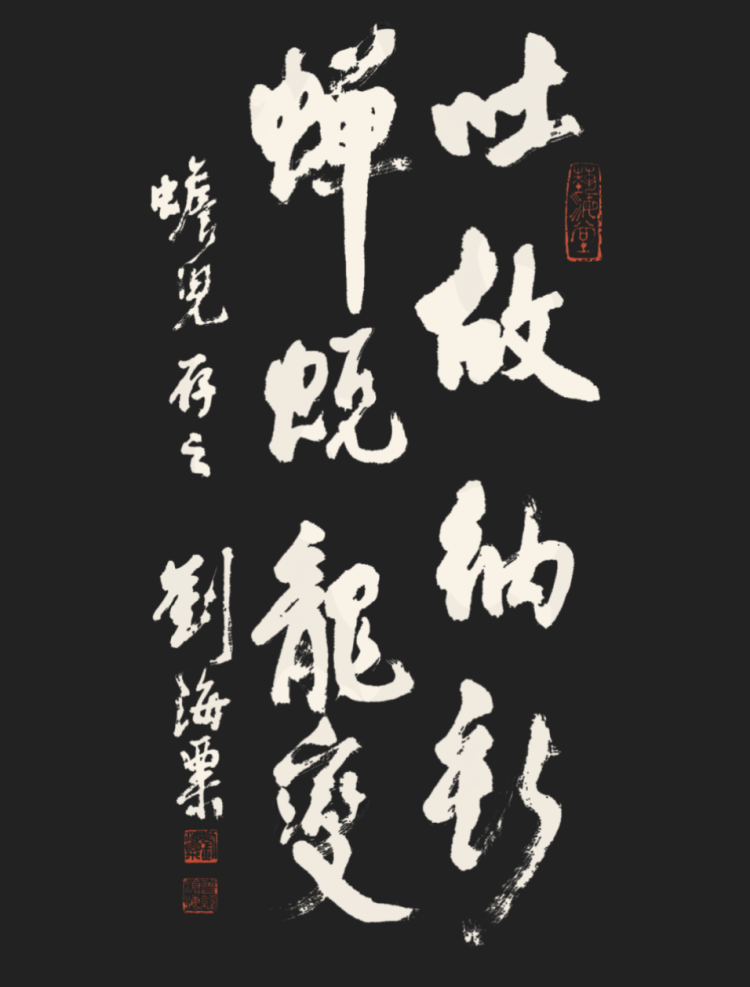 吐故纳新
蝉蜕龍變
蟾兒存之
劉海粟